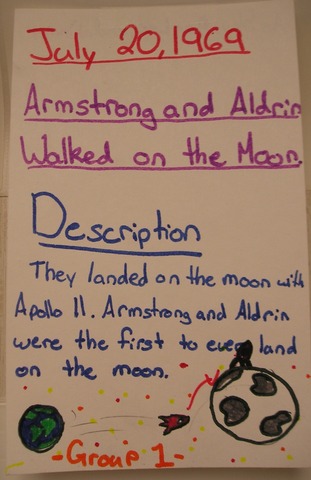 July 20, 1969
Armstrong and Aldrin
Walked on the Moon.
Description
They landed on the moon with
Apollo 11. Armstrong and Aldrin
were the first to ever land
on the moon.
-Group 1-